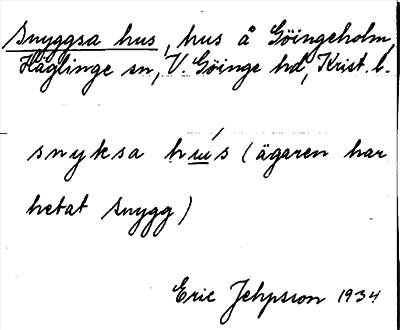 Snyggsa hus, hus å Göingeholm,
Häglinge sn, V. Göinge hd, Krist. l.
snyksa hu̲ú̲s (ägaren har
hetat Snygg)
Eric Jehpsson 1934